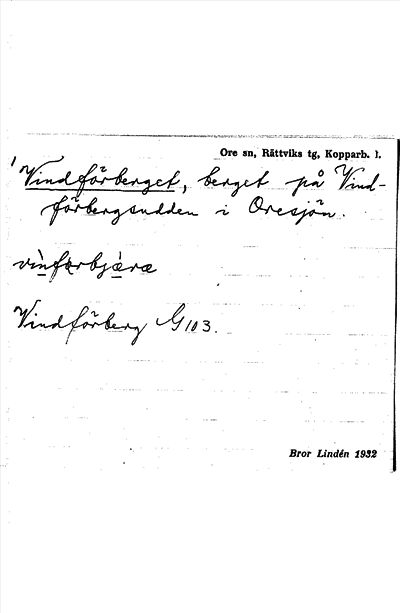 Ore sn, Rättviks tg, Kopparb. l.
Vindförberget, berget på Vind-
förbergsudden i Oresjön.
vìnfərbjæ̀ra
Vindförberg G 103.
Bror Lindén 1932